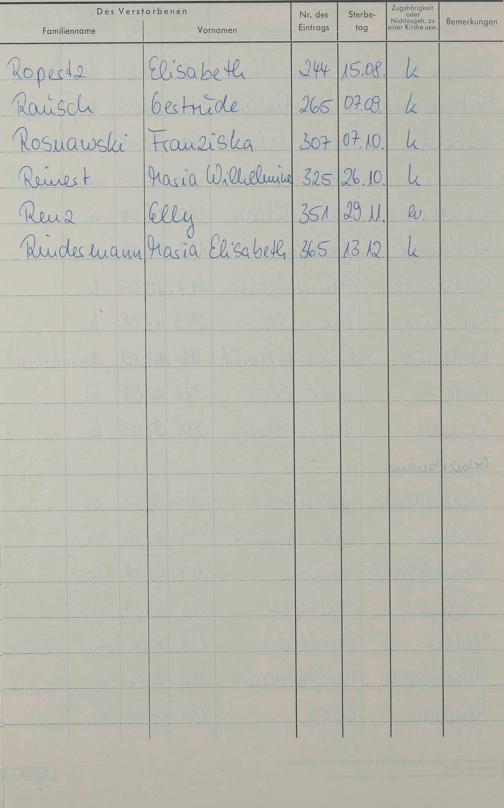 Des Verstorbenen
Familienname Vornamen Nr. des Eintrags Sterbe-tag Zugehörigkeit oder Nichtzugeh. zu einer Kirche usw. Bemerkungen
Ropertz Elisabeth 244 15.08. k
Rausch Gertrude 265 07.09. k
Rosnawski Franziska 307 07.10. k
Reinert Maria Wilhelmine 325 26.10. k
Renz Elly 351 29.11. ev.
Rindermann Maria Elisabeth 365 13.12. k